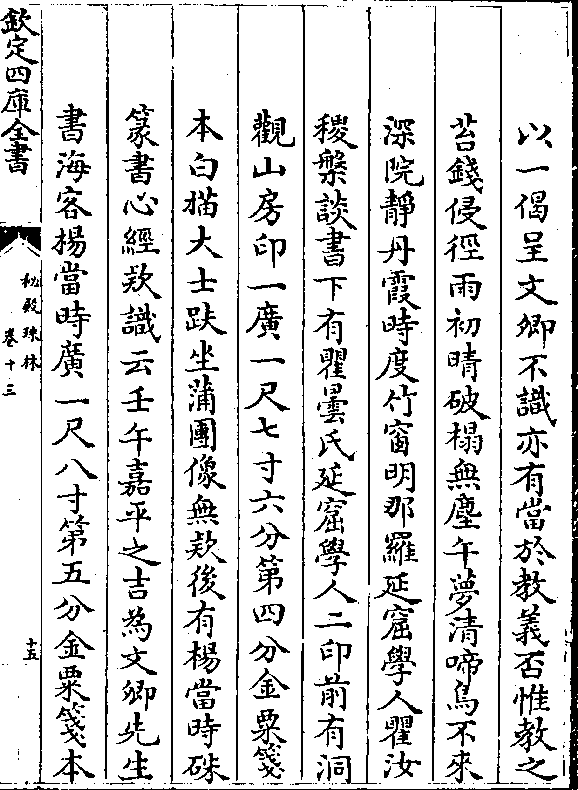 以一偈呈文卿不識亦有當於教義否惟教之
苔錢侵徑雨初晴破榻無塵午夢清啼鳥不來
深院靜丹霞時度竹窗明那羅延窟學人瞿汝
稷槃談書下有瞿曇氏延窟學人二印前有洞
觀山房印一廣一尺七寸六分第四分金粟箋
本白描大士趺坐蒲團像無欵後有楊當時硃
篆書心經欵識云壬午嘉平之吉為文卿先生
書海客楊當時廣一尺八寸第五分金粟箋本
欽定四庫全書
秘殿珠林
卷十三
十五